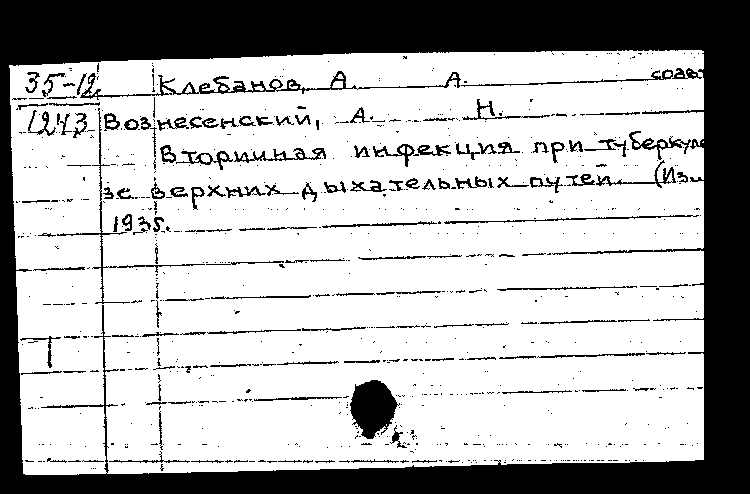 35-12. Клебанов, А. А. соавт
1243 Вознесенский, А. Н.
Вторичная инфекция при туберкуле
зе верхних дыхательных путей. (Из
1935.